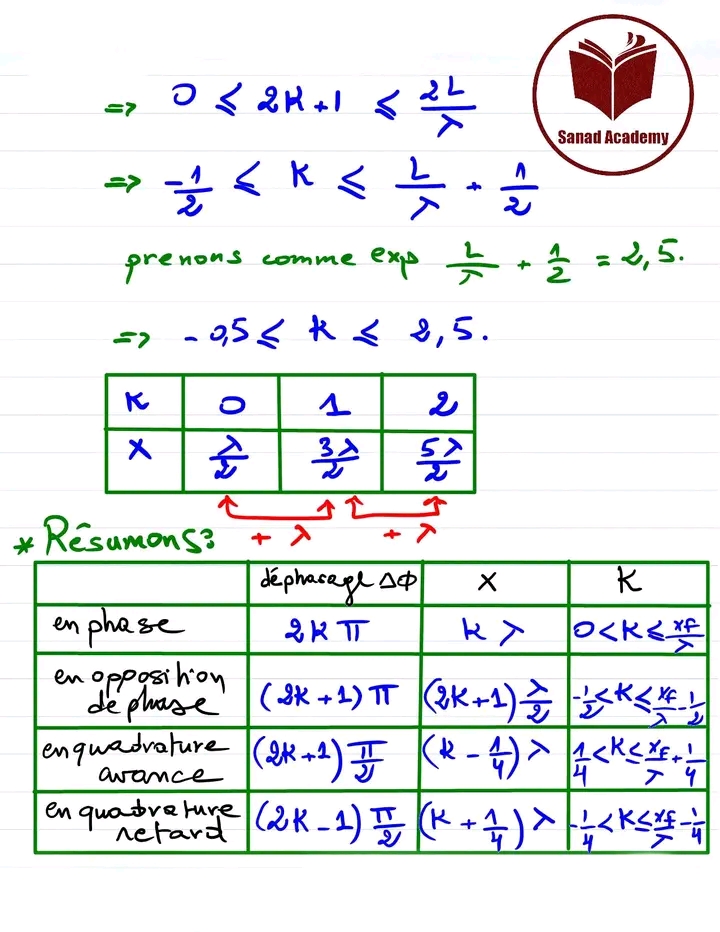 Sanad Academy
=> 0 ⩽ 2K+1 ⩽ 2L/λ
=> -1/2 ⩽ K ⩽ L/λ + 1/2
prenons comme exp L/λ + 1/2 = 2,5.
=> - 0,5 ⩽ K ⩽ 2,5.
K 0 1 2
X λ/2 3λ/2 5λ/2
+ λ + λ
* Résumons:
déphasage ΔΦ X K
en phase 2Kπ Kλ 0<K⩽xF/λ
en opposition
de phase (2K+1)π (2K+1)λ/2 -1/2<K⩽xF/λ-1/2
en quadrature
avance (2K+1)π/2 (K-1/4)λ 1/4<K⩽xF/λ+1/4
en quadrature
retard (2K-1)π/2 (K+1/4)λ -1/4<K⩽xF/λ-1/4